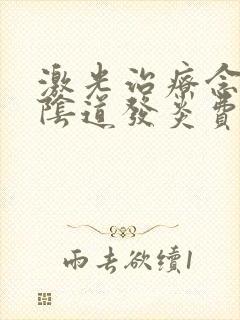 激光治療念
陰道發炎費
雨去欲續1